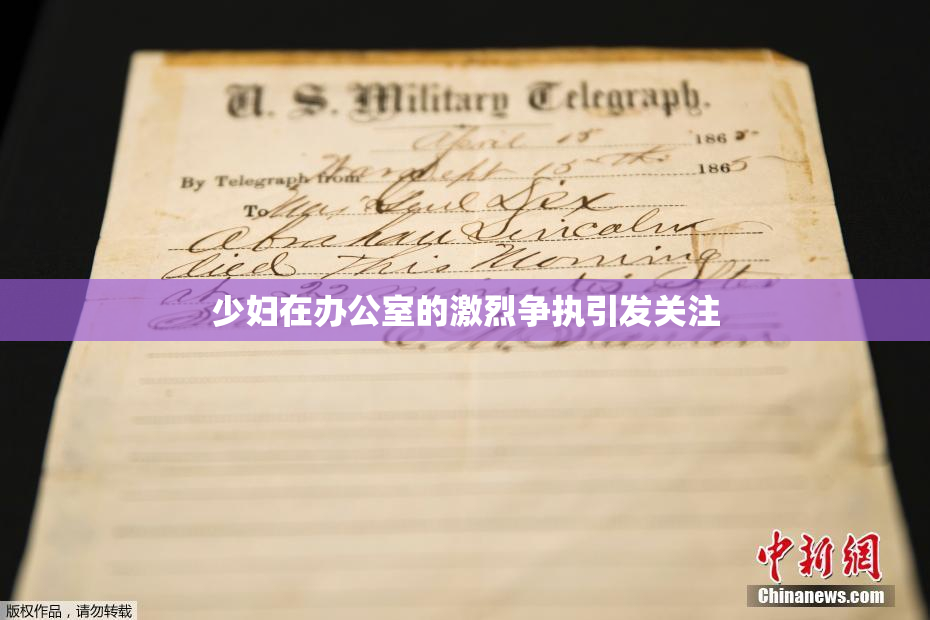 U. S. Military Telegraph.
April 15 1865
By Telegraph from War Dept 15th 1865
To Maj Genl Dix
Abraham Lincoln
died This Morning
at 22 minutes after
少妇在办公室的激烈争执引发关注
E. M. Stanton
中新网
Chinanews.com
版权作品，请勿转载